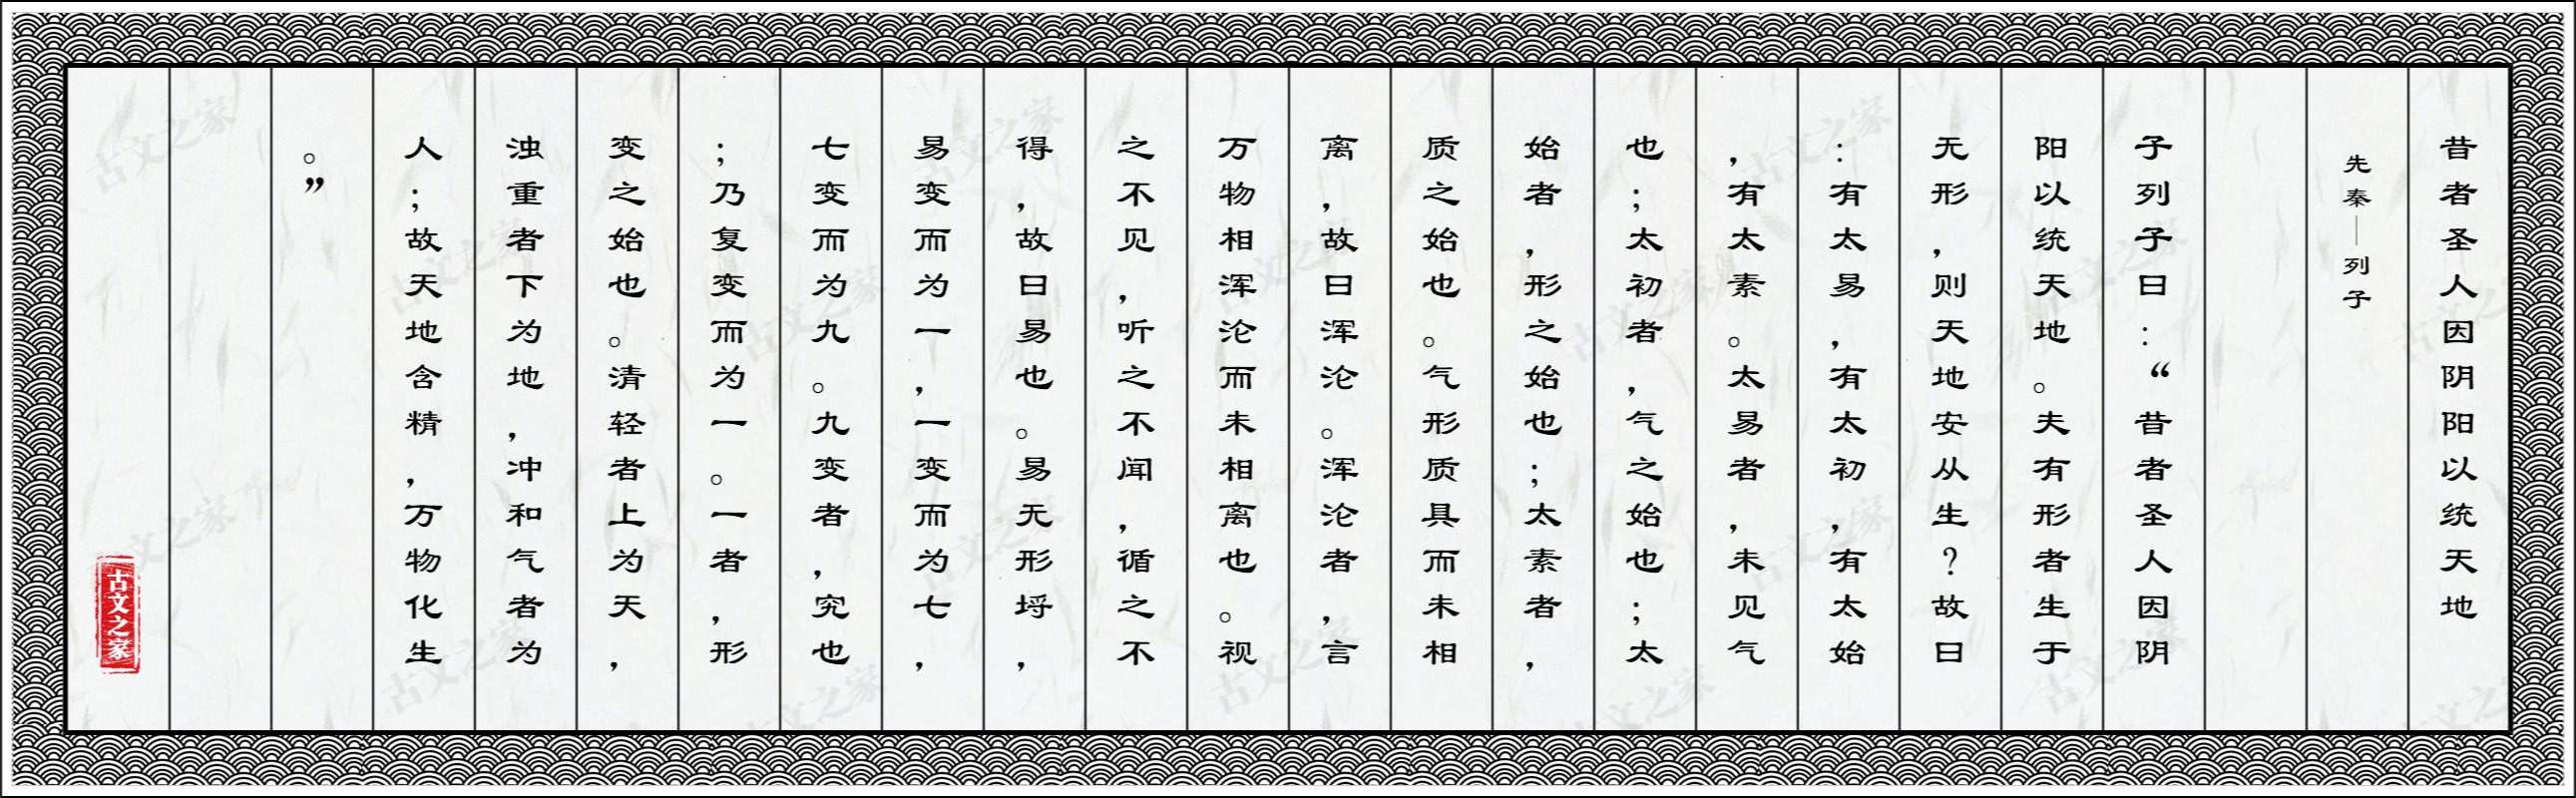 昔者圣人因阴阳以统天地
先秦—列子
子列子曰：“昔者圣人因阴
阳以统天地。夫有形者生于
无形，则天地安从生？故曰
：有太易，有太初，有太始
，有太素。太易者，未见气
也；太初者，气之始也；太
始者，形之始也；太素者，
质之始也。气形质具而未相
离，故曰浑沦。浑沦者，言
万物相浑沦而未相离也。视
之不见，听之不闻，循之不
得，故曰易也。易无形埒，
易变而为一，一变而为七，
七变而为九。九变者，究也
；乃复变而为一。一者，形
变之始也。清轻者上为天，
浊重者下为地，冲和气者为
人；故天地含精，万物化生
。”
古文之家